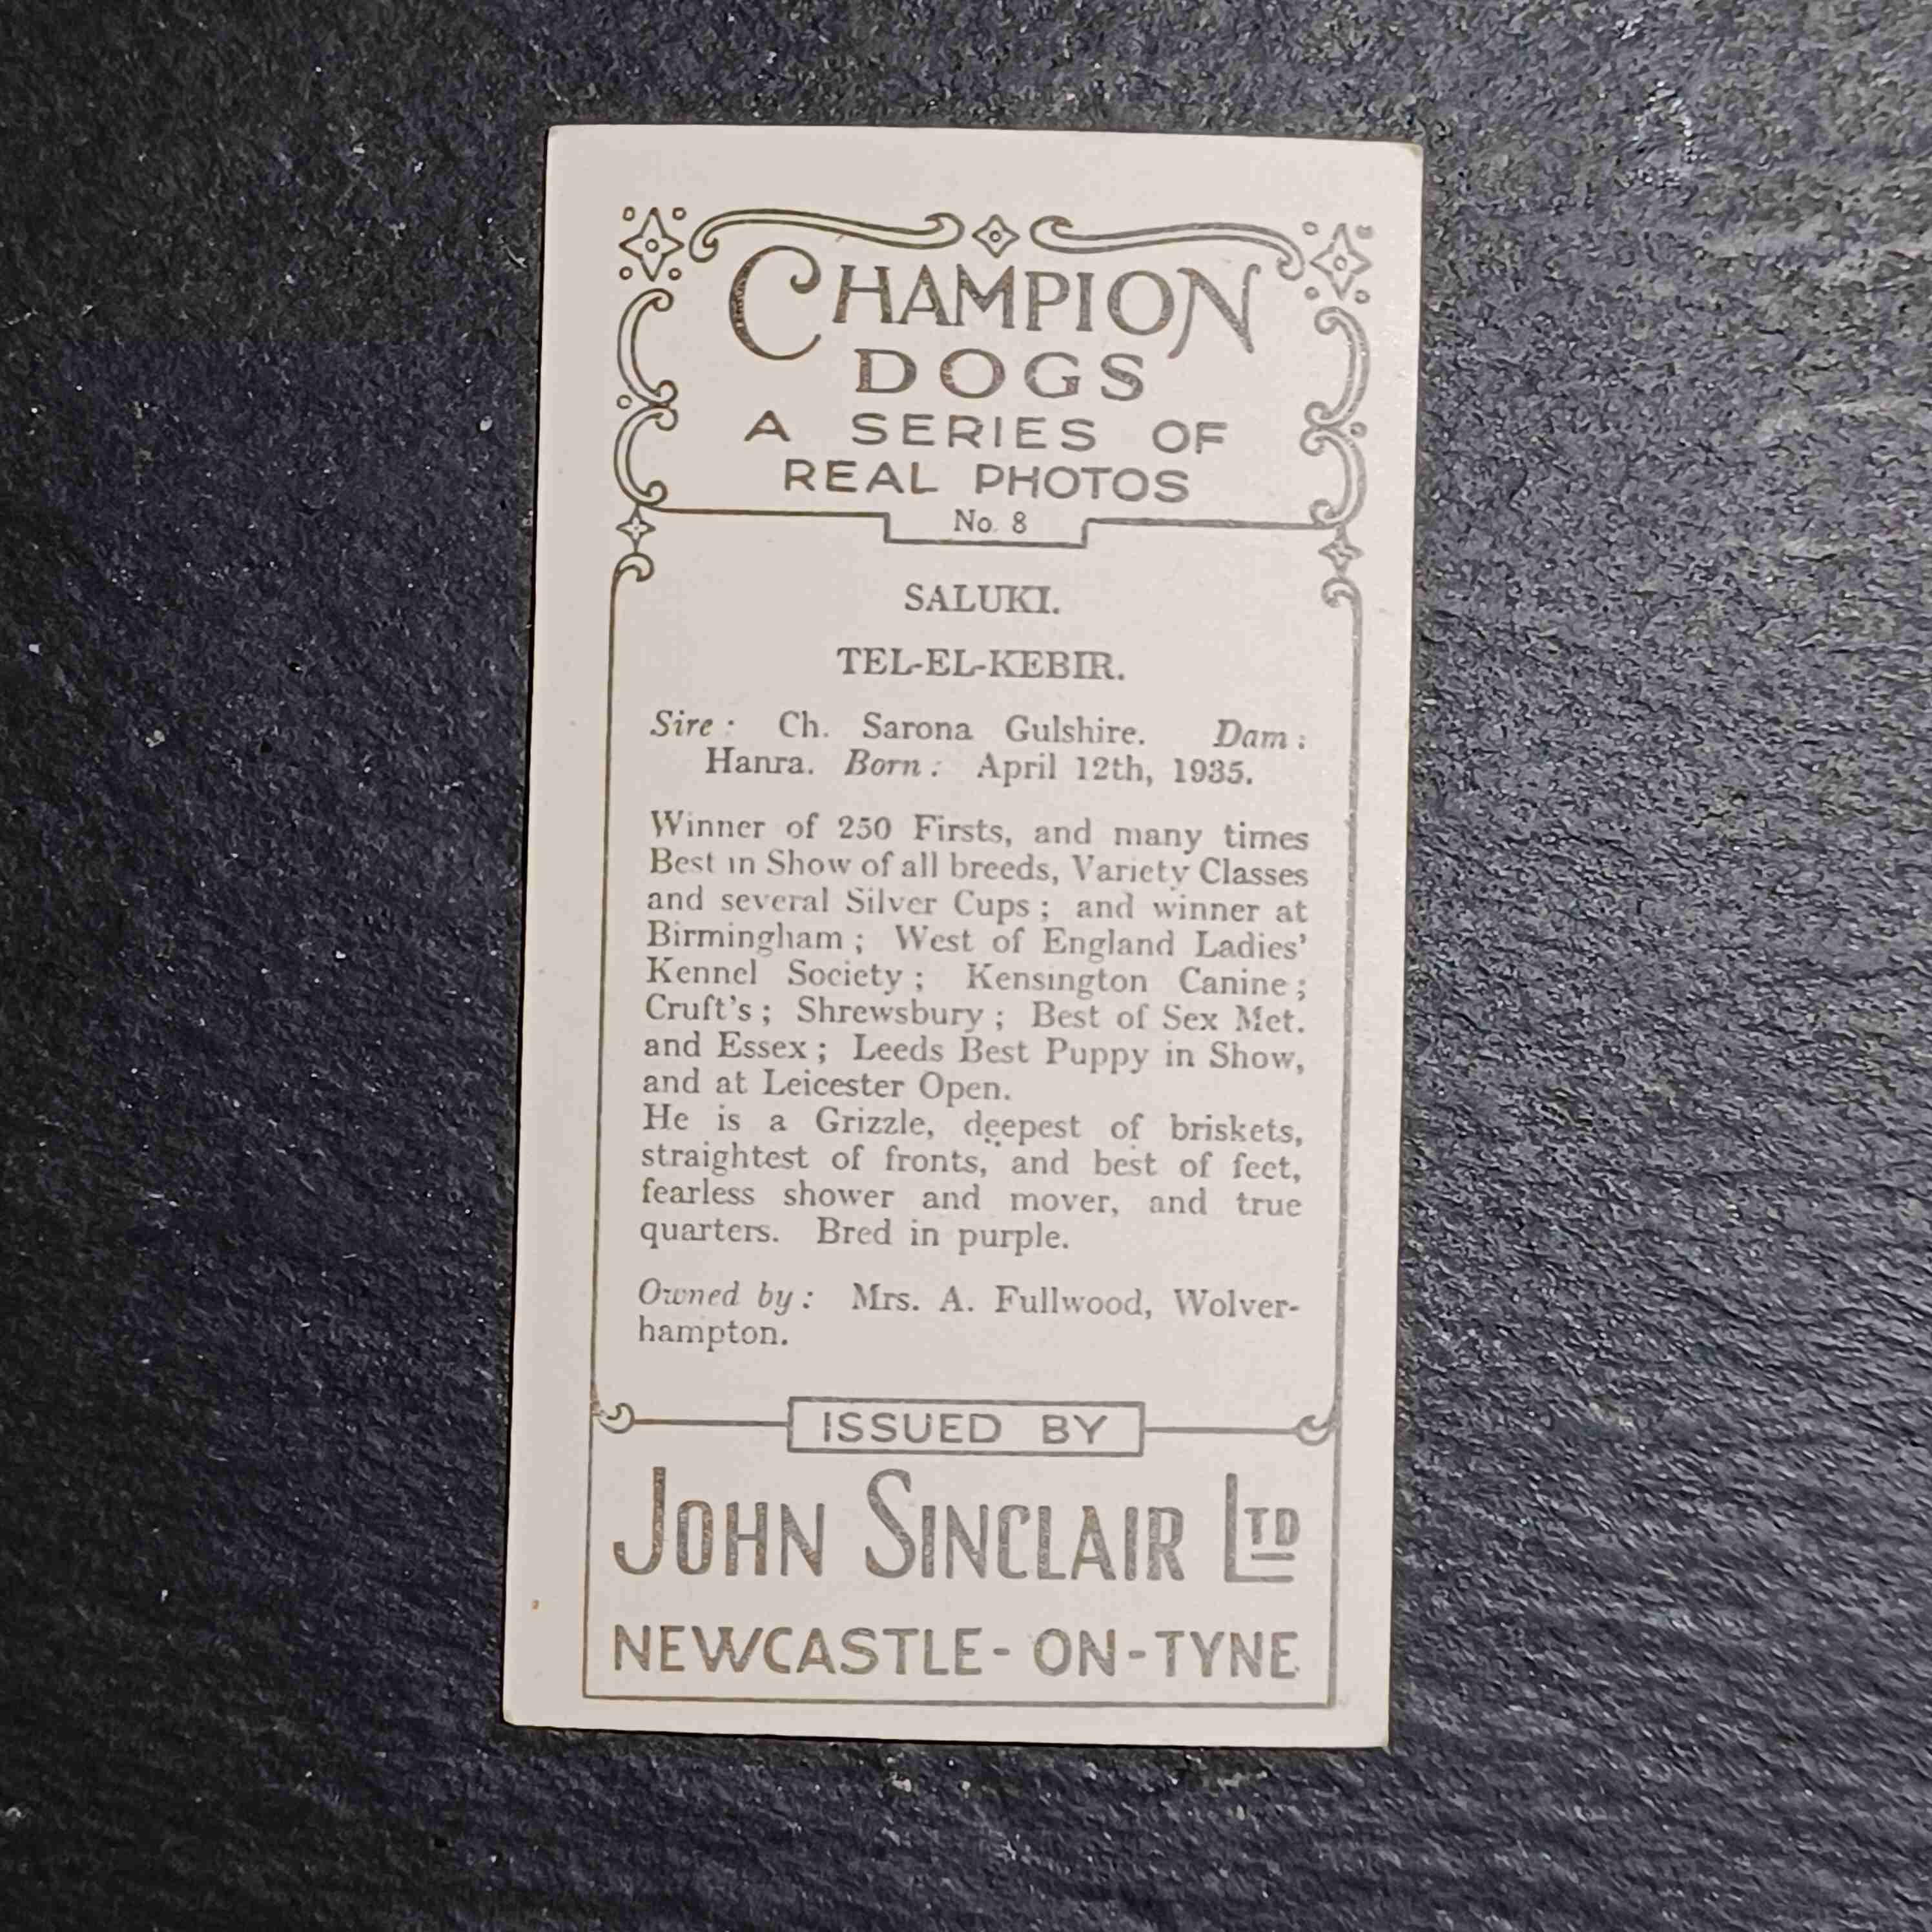 CHAMPION
DOGS
A SERIES OF
REAL PHOTOS
No. 8
SALUKI.
TEL-EL-KEBIR.
Sire : Ch. Sarona Gulshire. Dam :
Hanra. Born : April 12th, 1935.
Winner of 250 Firsts, and many times
Best in Show of all breeds, Variety Classes
and several Silver Cups ; and winner at
Birmingham ; West of England Ladies'
Kennel Society ; Kensington Canine ;
Cruft's ; Shrewsbury ; Best of Sex Met.
and Essex ; Leeds Best Puppy in Show,
and at Leicester Open.
He is a Grizzle, deepest of briskets,
straightest of fronts, and best of feet,
fearless shower and mover, and true
quarters. Bred in purple.
Owned by : Mrs. A. Fullwood, Wolver-
hampton.
ISSUED BY
JOHN SINCLAIR LTD
NEWCASTLE-ON-TYNE